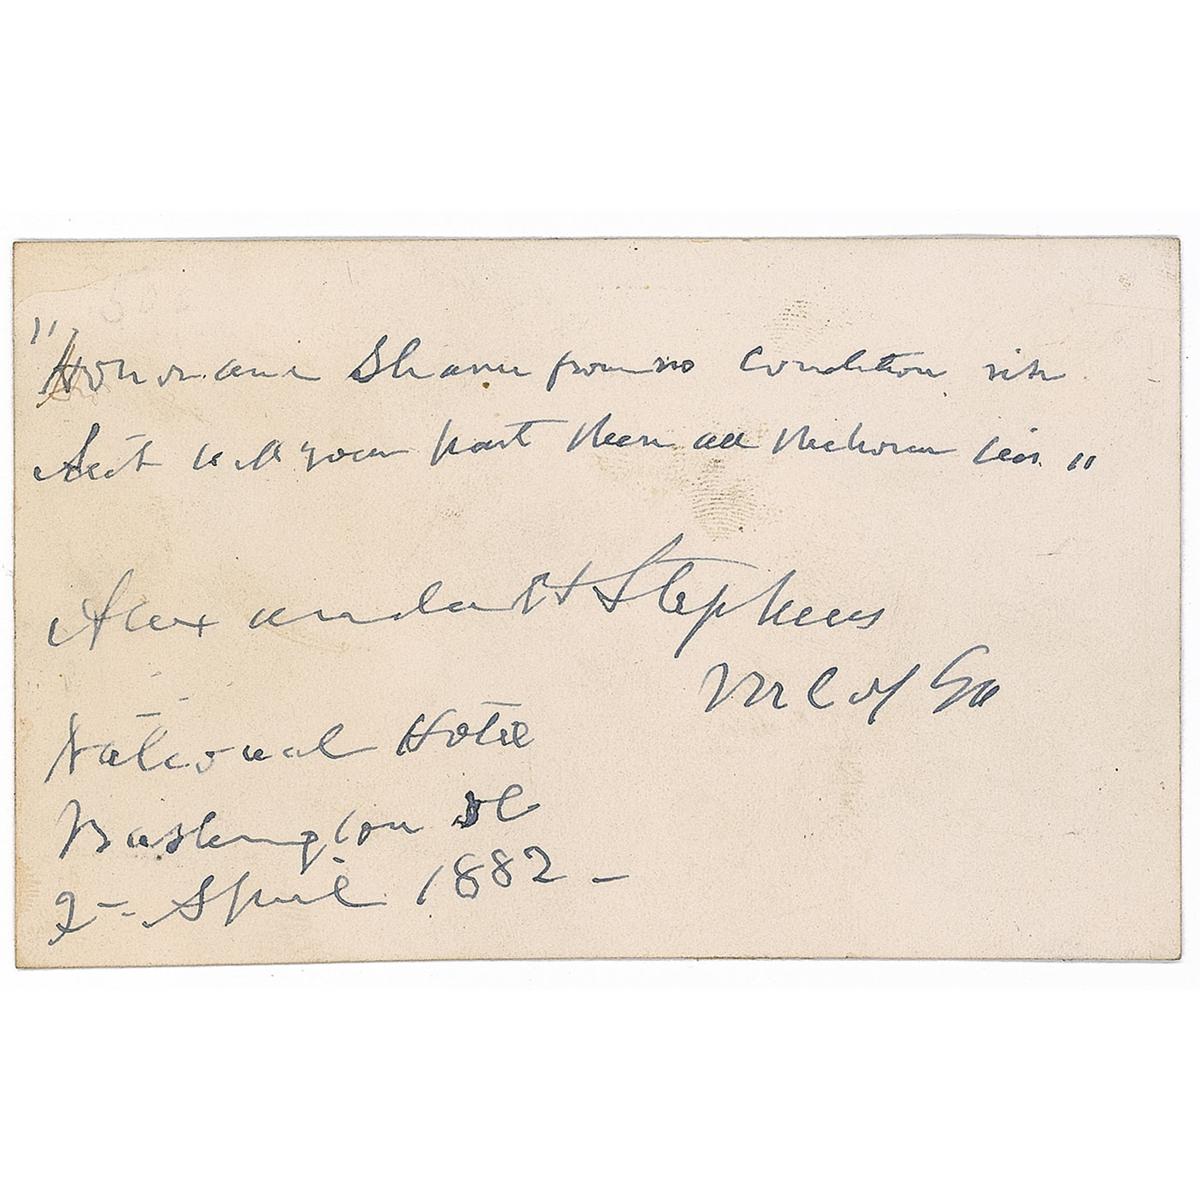 "Honor and Shame from no condition rise
Act well your part there all the honor lies."
Alexander H Stephens
M C of Ga
National Hotel
Washington DC
2 - April 1882 -